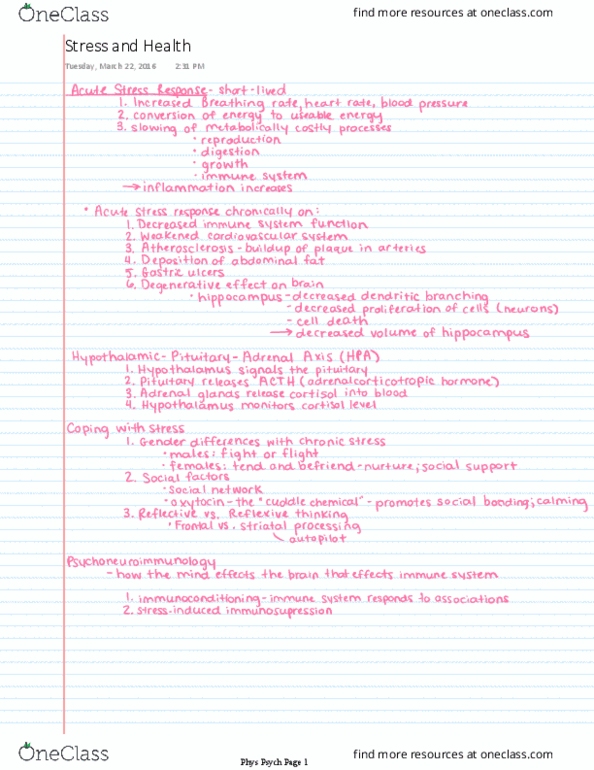 OneClass find more resources at oneclass.com
Stress and Health
Tuesday, March 22, 2016 2:31 PM
Acute Stress Response - short-lived
1. Increased Breathing rate, heart rate, blood pressure
2. conversion of energy to useable energy
3. slowing of metabolically costly processes
• reproduction
• digestion
• growth
• immune system
→ inflammation increases
• Acute stress response chronically on:
1. Decreased immune system function
2. Weakened cardiovascular system
3. Atherosclerosis - buildup of plaque in arteries
4. Deposition of abdominal fat
5. Gastric ulcers
6. Degenerative effect on brain
• hippocampus - decreased dendritic branching
- decreased proliferation of cells (neurons)
- cell death
→ decreased volume of hippocampus
Hypothalamic - Pituitary - Adrenal Axis (HPA)
1. Hypothalamus signals the pituitary
2. Pituitary releases ACTH (adrenalcorticotropic hormone)
3. Adrenal glands release cortisol into blood
4. Hypothalamus monitors cortisol level
Coping with stress
1. Gender differences with chronic stress
• males: fight or flight
• females: tend and befriend - nurture; social support
2. Social factors
• Social network
• oxytocin - the "cuddle chemical" - promotes social bonding; calming
3. Reflective vs. Reflexive thinking
• Frontal vs. striatal processing
autopilot
Psychoneuroimmunology
- how the mind effects the brain that effects immune system
1. immunoconditioning - immune system responds to associations
2. stress-induced immunosupression
OneClass Phys Psych Page 1 find more resources at oneclass.com